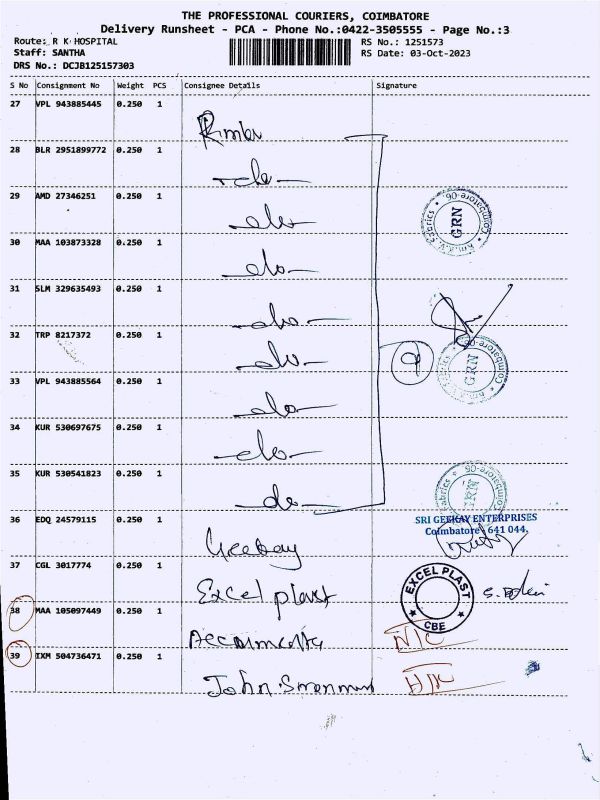 THE PROFESSIONAL COURIERS, COIMBATORE
Delivery Runsheet - PCA - Phone No.:0422-3505555 - Page No.:3
Route: R K HOSPITAL RS No.: 1251573
Staff: SANTHA RS Date: 03-Oct-2023
DRS No.: DCJB125157303
S No Consignment No Weight PCS Consignee Details Signature
27 VPL 943885445 0.250 1
28 BLR 2951899772 0.250 1
29 AMD 27346251 0.250 1
GRN
Coimbatore-06
30 MAA 103873328 0.250 1
31 SLM 329635493 0.250 1
32 TRP 8217372 0.250 1
9
GRN
Coimbatore-06
33 VPL 943885564 0.250 1
34 KUR 530697675 0.250 1
35 KUR 530541823 0.250 1 do
GRN
36 EDQ 24579115 0.250 1 Geekay
SRI GEEKAY ENTERPRISES
Coimbatore 641 044.
37 CGL 3017774 0.250 1 Excel plast
EXCEL PLAST
CBE
38 MAA 105097449 0.250 1
39 IXM 504736471 0.250 1 John